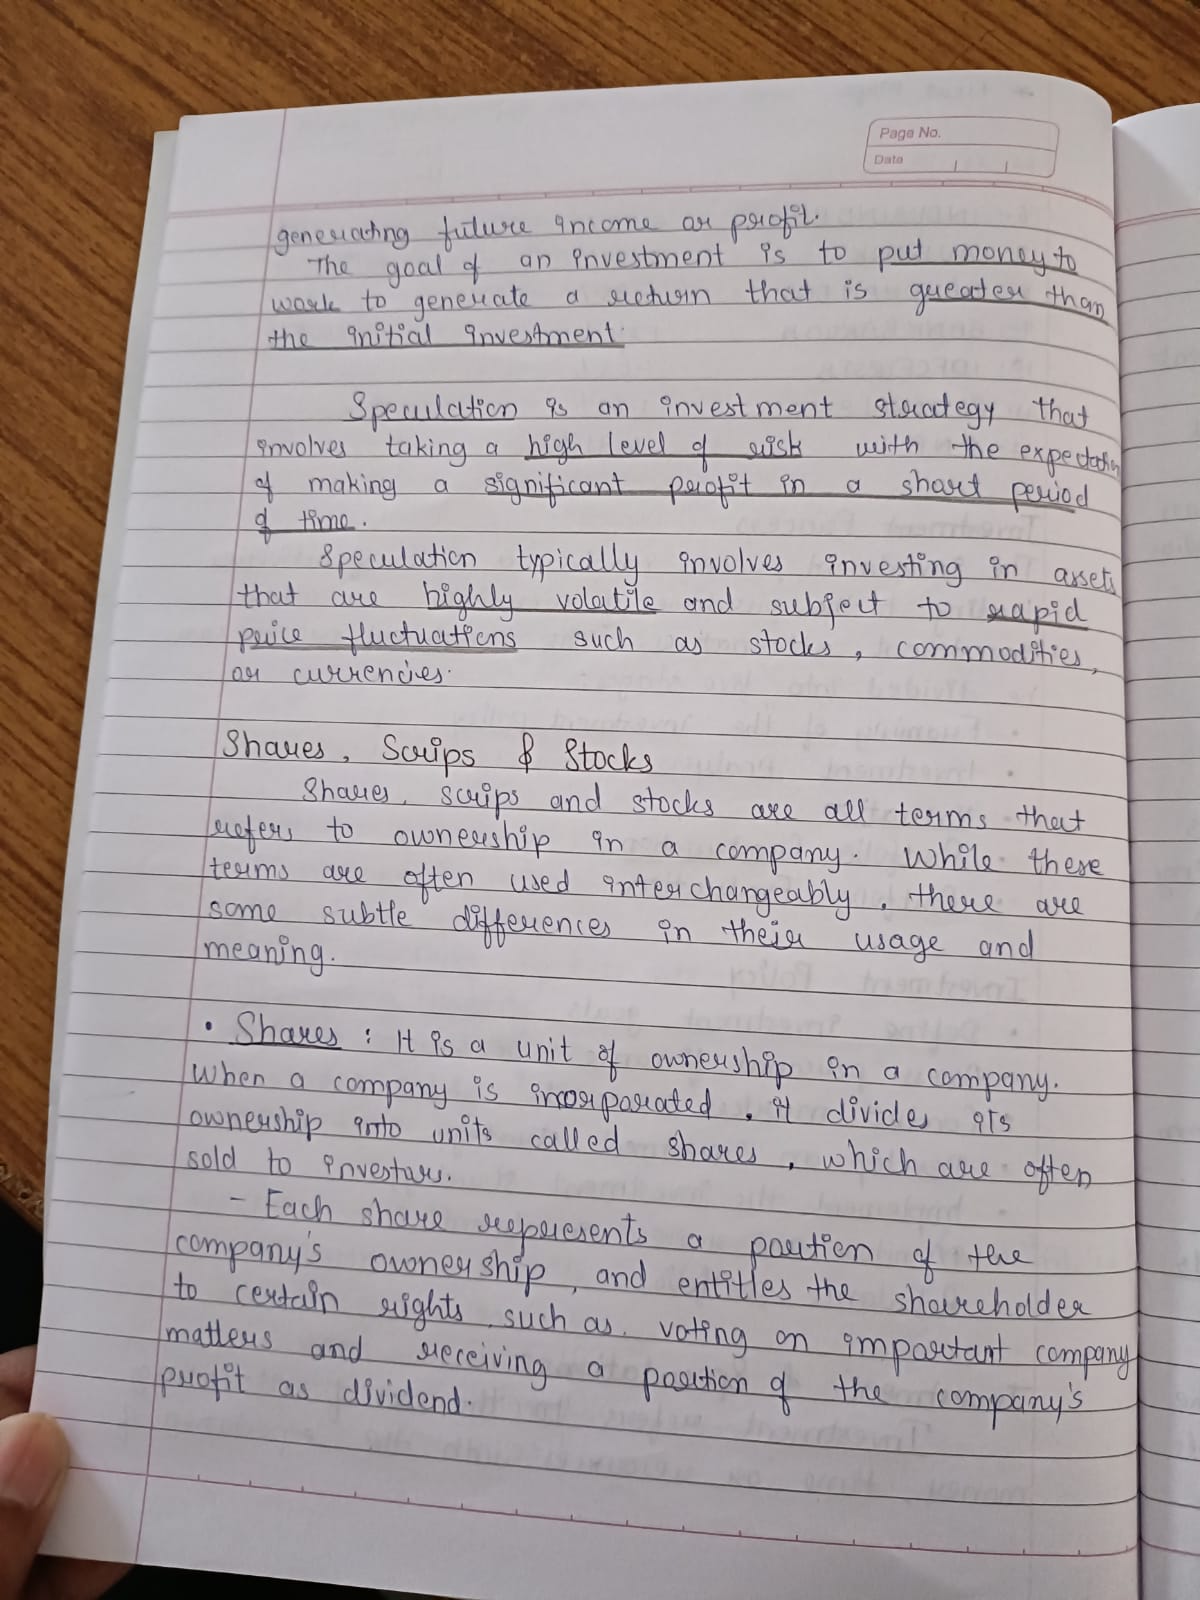 Page No.
Date
generating future income or profit.
The goal of an investment is to put money to
work to generate a return that is greater than
the initial investment.
Speculation is an investment strategy that
involves taking a high level of risk with the expectation
of making a significant profit in a short period
of time.
Speculation typically involves investing in assets
that are highly volatile and subject to rapid
price fluctuations such as stocks, commodities,
or currencies.
Shares, Scrips & Stocks
Shares, scrips and stocks are all terms that
refers to ownership in a company. While these
terms are often used interchangeably, there are
some subtle differences in their usage and
meaning.
• Shares : It is a unit of ownership in a company.
When a company is incorporated, it divides its
ownership into units called shares, which are often
sold to investors.
- Each share represents a portion of the
company's ownership, and entitles the shareholder
to certain rights, such as, voting on important company
matters and receiving a portion of the company's
profit as dividend.